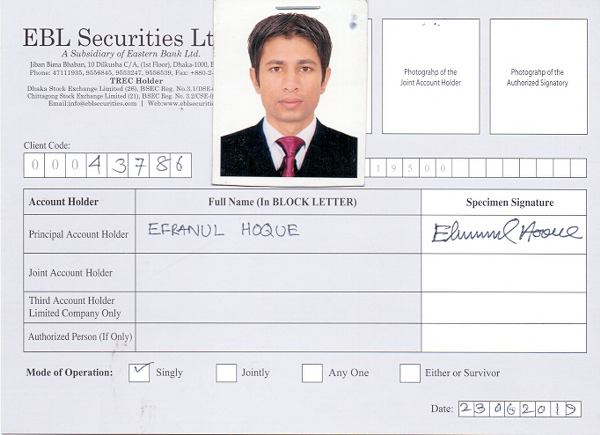 EBL Securities Lt
A Subsidiary of Eastern Bank Ltd.
Jiban Bima Bhaban, 10 Dilkusha C/A, (1st Floor), Dhaka-1000,
Phone: 47111935, 9556845, 9553247, 9556539, Fax: +880-2
TREC Holder
Dhaka Stock Exchange Limited (26), BSEC Reg. No.3.1/DSE
Chittagong Stock Exchange Limited (21), BSEC Reg. No. 3.2/CSE
Email:info@eblsecurities.com | Web:www.eblsecuriti
Photograhp of the
Joint Account Holder
Photograhp of the
Authorized Signatory
Client Code:
0 0 0 4 3 7 8 6
1 9 5 0 0
Account Holder Full Name (In BLOCK LETTER) Specimen Signature
Principal Account Holder EFRANUL HOQUE
Joint Account Holder
Third Account Holder
Limited Company Only
Authorized Person (If Only)
Mode of Operation: Singly Jointly Any One Either or Survivor
Date: 23062019